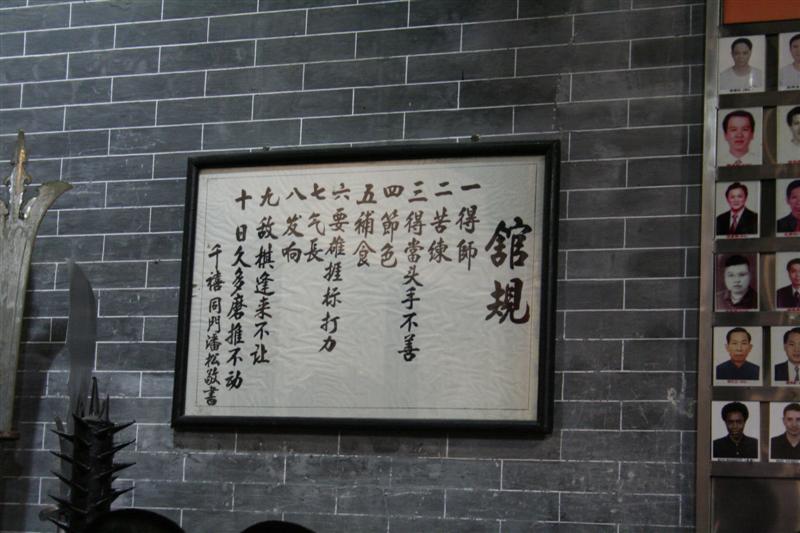 舘規
一得師
二苦練
三得當头手不善
四節色
五補食
六要雄捱标打力
七气長
八发响
九敌棋逢来不让
十日久多磨推不动
千禧同門潘松敬書